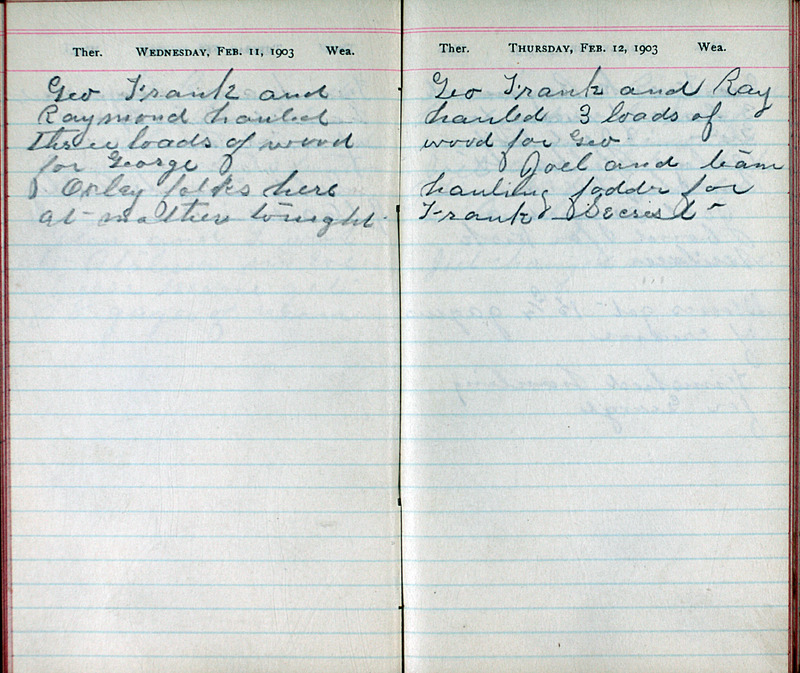 Ther. WEDNESDAY, FEB. 11, 1903 Wea.
Geo Frank and
Raymond hauled
three loads of wood
for George
Oxley folks here
at mothers tonight.
Ther. THURSDAY, FEB. 12, 1903 Wea.
Geo Frank and Ray
hauled 3 loads of
wood for Geo
Joel and team
hauling fodder for
Frank Secrist